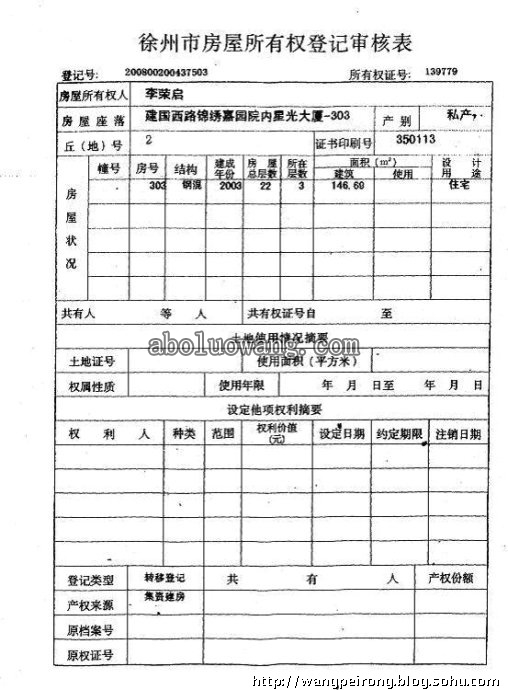 徐州市房屋所有权登记审核表
登记号: 200800200437503 所有权证号: 139779
房屋所有权人 李荣启
房屋座落 建国西路锦绣嘉园院内星光大厦-303 产别 私产
丘(地)号 2 证书印刷号 350113
房屋状况 幢号 房号 结构 建成年份 房屋总层数 所在层数 面积(m²) 建筑 使用 设计用途
303 钢混 2003 22 3 146.69 住宅
共有人 等 人 共有权证号自 至
土地使用情况摘要
aboluowang.com
土地证号 使用面积(平方米)
权属性质 使用年限 年 月 日至 年 月 日
设定他项权利摘要
权利人 种类 范围 权利价值(元) 设定日期 约定期限 注销日期
登记类型 转移登记 共 有 人 产权份额
产权来源 集资建房
原档案号
原权证号
http://wangpeirong.blog.sohu.com